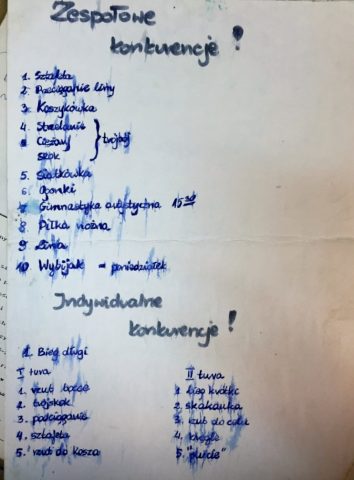 Zespołowe
konkurencje!
1. Sztafeta
2. Pociąganie liny
3. Koszykówka
4. Strzelanie
Czołowy
skok
} trójbój
5. Siatkówka
6. Ogonki
7 Gimnastyka artystyczna 15 30
8 Piłka nożna
9 Linia
10. Wybijak = poniedziałek
Indywidualne
konkurencje!
1. Bieg długi
I tura
1. rzut
2. trójskok
3. podciąganie
4. sztafeta
5. rzuty do kosza
II tura
1 bieg krótki
2. skakanka
3. rzut do celu
4. kręgle
5.